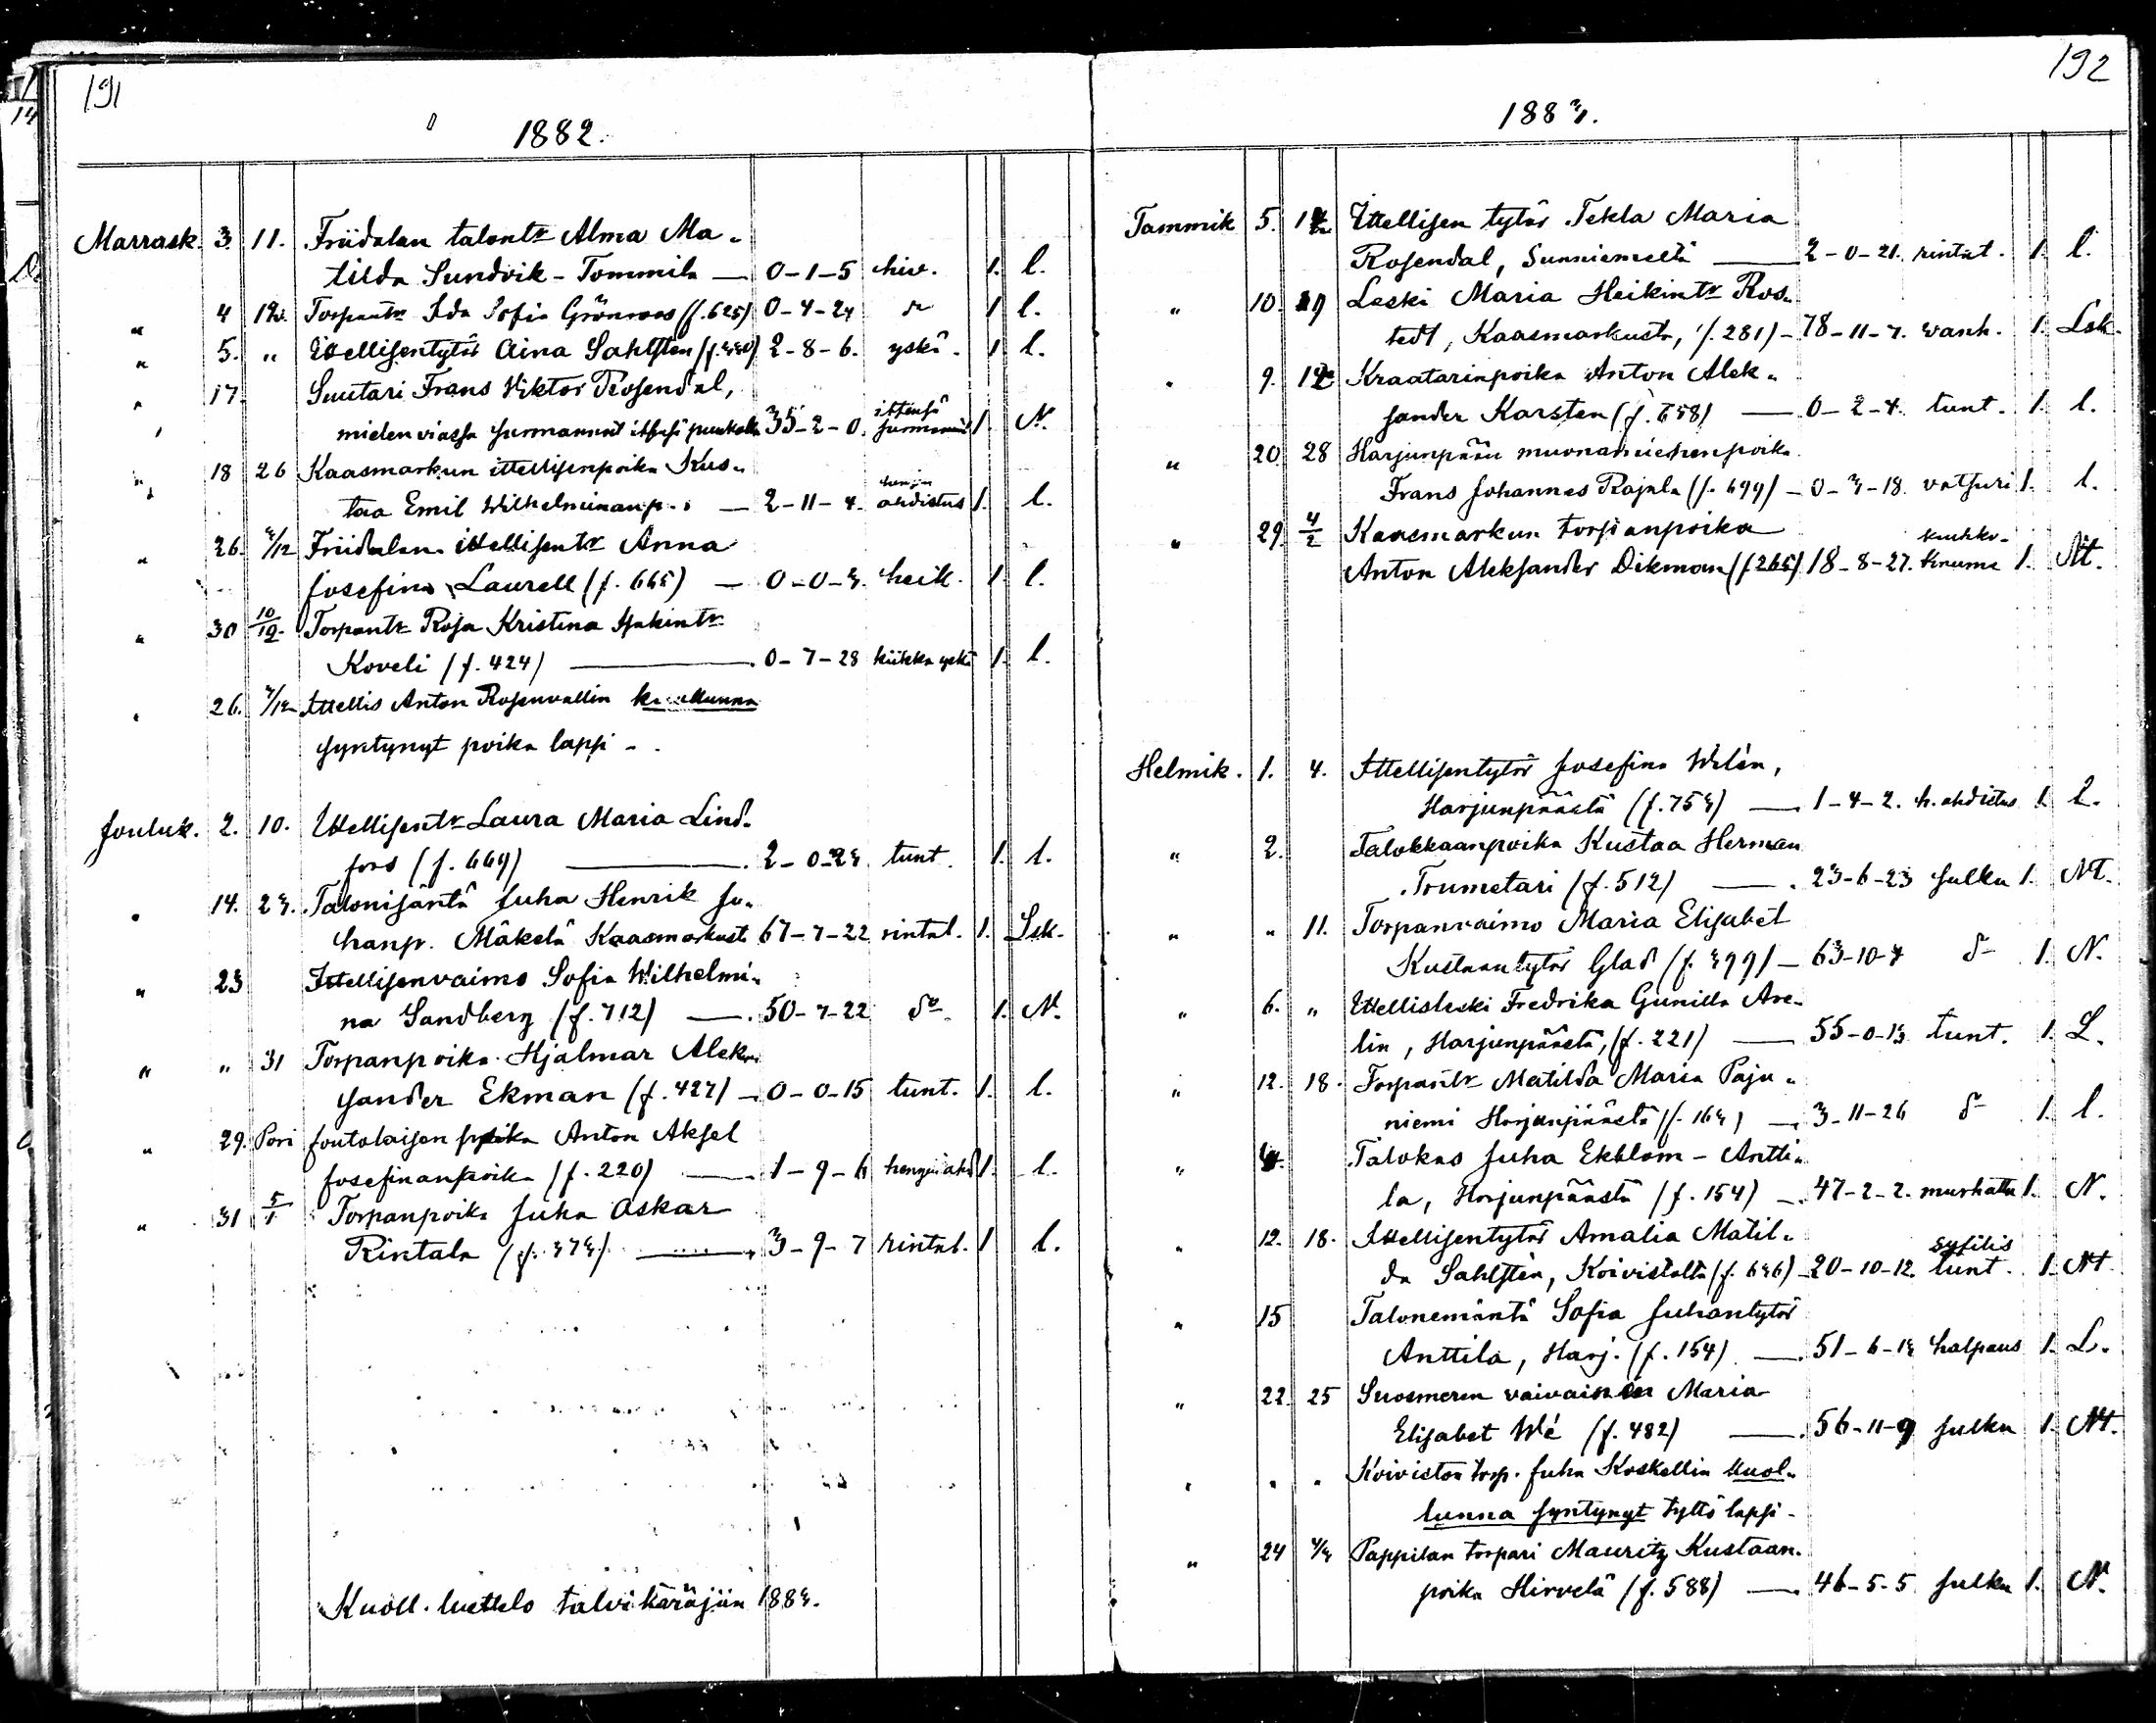 191
1882.
Marrask. 3. 11. Friidalan talontr Alma Ma-
tilda Sundvik-Tommila — 0-1-5 hiv. 1. l.
" 4 12. Torpantr Ida Sofia Grönroos (f. 625) 0-4-24 dr 1 l.
" 5. " Ittellisentytär Aina Sahlsten (f. 330) 2-8-6. yskä. 1 l.
" 17. Suutari Frans Viktor Rosendal,
mielen viassa surmannut itsesä puukolla 35-2-0. ittensä surmannut 1. N.
" 18 26 Kaasmarkun ittellisenpoika Kus-
taa Emil Wilhelmiinanp. — 2-11-4. hengen ahdistus 1. l.
" 26. 3/12 Friidalan ittellisentr Anna
Josefina Laurell (f. 665) — 0-0-3. heik. 1. l.
" 30 10/12. Torpantr Rosa Kristina Isakintr
Koveli (f. 424) — 0-7-28 hiikka yskä 1. l.
" 26. 3/12 Ittellis Anton Rosenvallin kuollunna
syntynyt poika lapsi -
Jouluk. 2. 10. Ittellisentr Laura Maria Lind-
fors (f. 669) — 2-0-23. tunt. 1. l.
" 14. 23. Talonisäntä Juha Henrik Ju-
hanp. Mäkelä Kaasmarkusta 67-7-22 rintat. 1. Lsk.
" 23 Ittellisenvaimo Sofia Wilhelmi-
na Sandberg (f. 712) — 50-7-22 do 1. N.
" " 31 Torpanpoika Hjalmar Alek-
sander Ekman (f. 427) — 0-0-15 tunt. 1. l.
" 29. Pori Joutolaisen poika Anton Aksel
Josefinanpoika (f. 220) — 1-9-6 hengenahd 1. l.
" 31 5/1 Torpanpoika Juha Oskar
Rintala (f. 373) — 3-9-7 rintat. 1 l.
Kuoll. luettelo talvikäräjiin 1883.
192
1883.
Tammik 5. 12 Ittellisen tytär Tekla Maria
Rosendal, Sunniemeltä — 2-0-21. rintat. 1. l.
" 10. Leski Maria Heikintr Ros-
tedt, Kaasmarkusta, (f. 281) — 78-11-7. vanh. 1. Lsk.
" 9. 12 Kraatarinpoika Anton Alek-
sander Karsten (f. 658) — 0-2-4. tunt. 1. l.
" 20. 28 Harjunpään muonamiehenpoika
Frans Johannes Rajala (f. 699) — 0-3-18. vatsuri 1. l.
" 29. 4/2 Kaasmarkun torpanpoika
Anton Aleksander Dikman (f 265) 18-8-27. keuhko-kuume 1. Nt.
Helmik. 1. 4. Ittellisentytär Josefina Welén,
Harjunpäästä (f. 753) — 1-4-2. h. ahdistus 1. l.
" 2. Talokkaanpoika Kustaa Herman
Toumetari (f. 512) — 23-6-23 Julku 1. NT.
" " 11. Torpanvaimo Maria Elisabet
Kustaantytär Glad (f. 399) — 63-10-7 do 1. N.
" 6. " Ittellisleski Fredrika Gunilla Ave-
lin, Harjunpäästä, (f. 221) — 55-0-13 tunt. 1. L.
" 12. 18. Torpantr Matilda Maria Paju-
niemi Harjunpäästä (f. 163) — 3-11-26 do 1. l.
" Talokas Juha Ekblom-Antti-
la, Harjunpäästä (f. 154) — 47-2-2. murhattu 1. N.
" 12. 18. Ittellisentytär Amalia Matil-
da Sahlstén, Koivistolta (f. 636) — 20-10-12. syfilis tunt. 1. Nt
" 15 Talonemäntä Sofia Juhantytär
Anttila, Harj. (f. 154) — 51-6-13 halpaus 1. L.
" 22. 25 Suosmeren vaivainen Maria
Elisabet Wé (f. 482) — 56-11-9 Julku 1. Nt.
" " " Koiviston torp. Juha Koskellin kuol-
lunna syntynyt tyttö lapsi -
" 24 4/3 Pappilan torpari Mauritz Kustaan-
poika Hirvelä (f. 588) — 46-5-5 Julku 1. N.